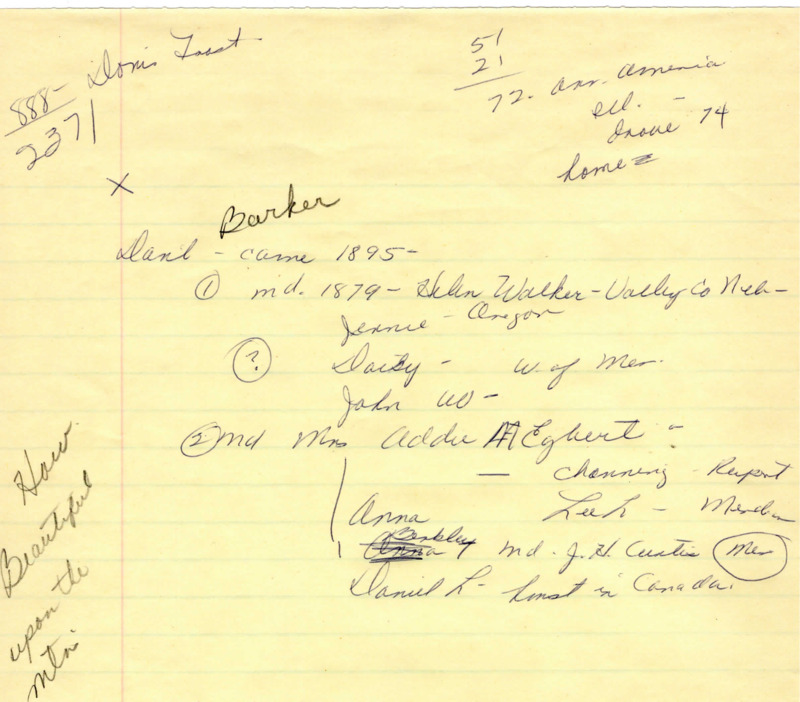 888- Doris
2371
51
21
72. arr. Armenia
Ill. -
drove 74
home
X
Barker
Danl - came 1895-
① md. 1879 - Helen Walker - Valley Co Neb-
Jennie - Oregon
? Daisy - W. of Mer.
John W -
② md Mrs Addie M Egbert -
— Channing - Rupert
Anna Lee L - Meridian
Berkley md. J. H. Curtis Mer
Daniel L - in Canada.
How
Beautiful
upon the
mtn